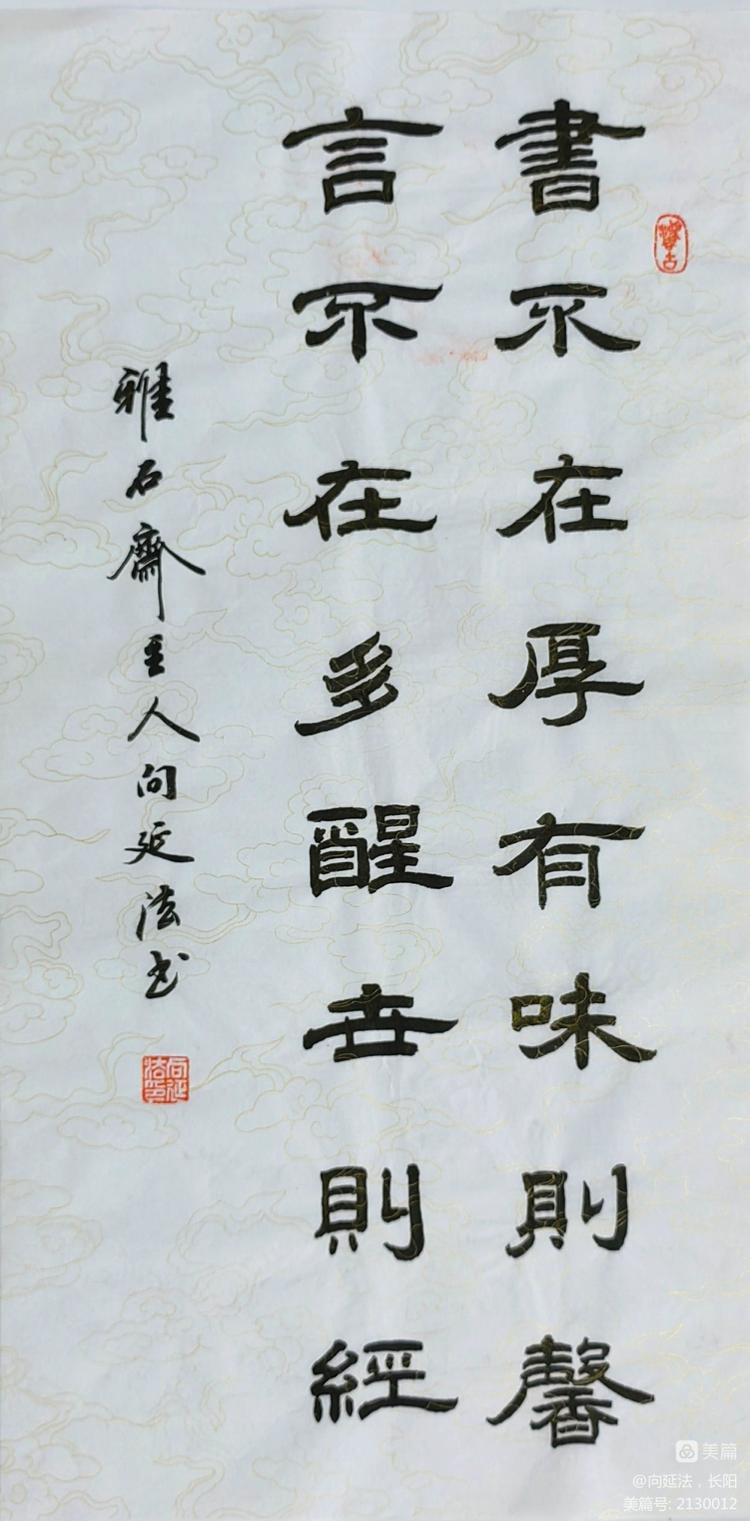 書不在厚有味則馨
言不在多醒世則經
雅石齋主人向延法书
向延法印
美篇
@向延法，长阳
美篇号: 2130012